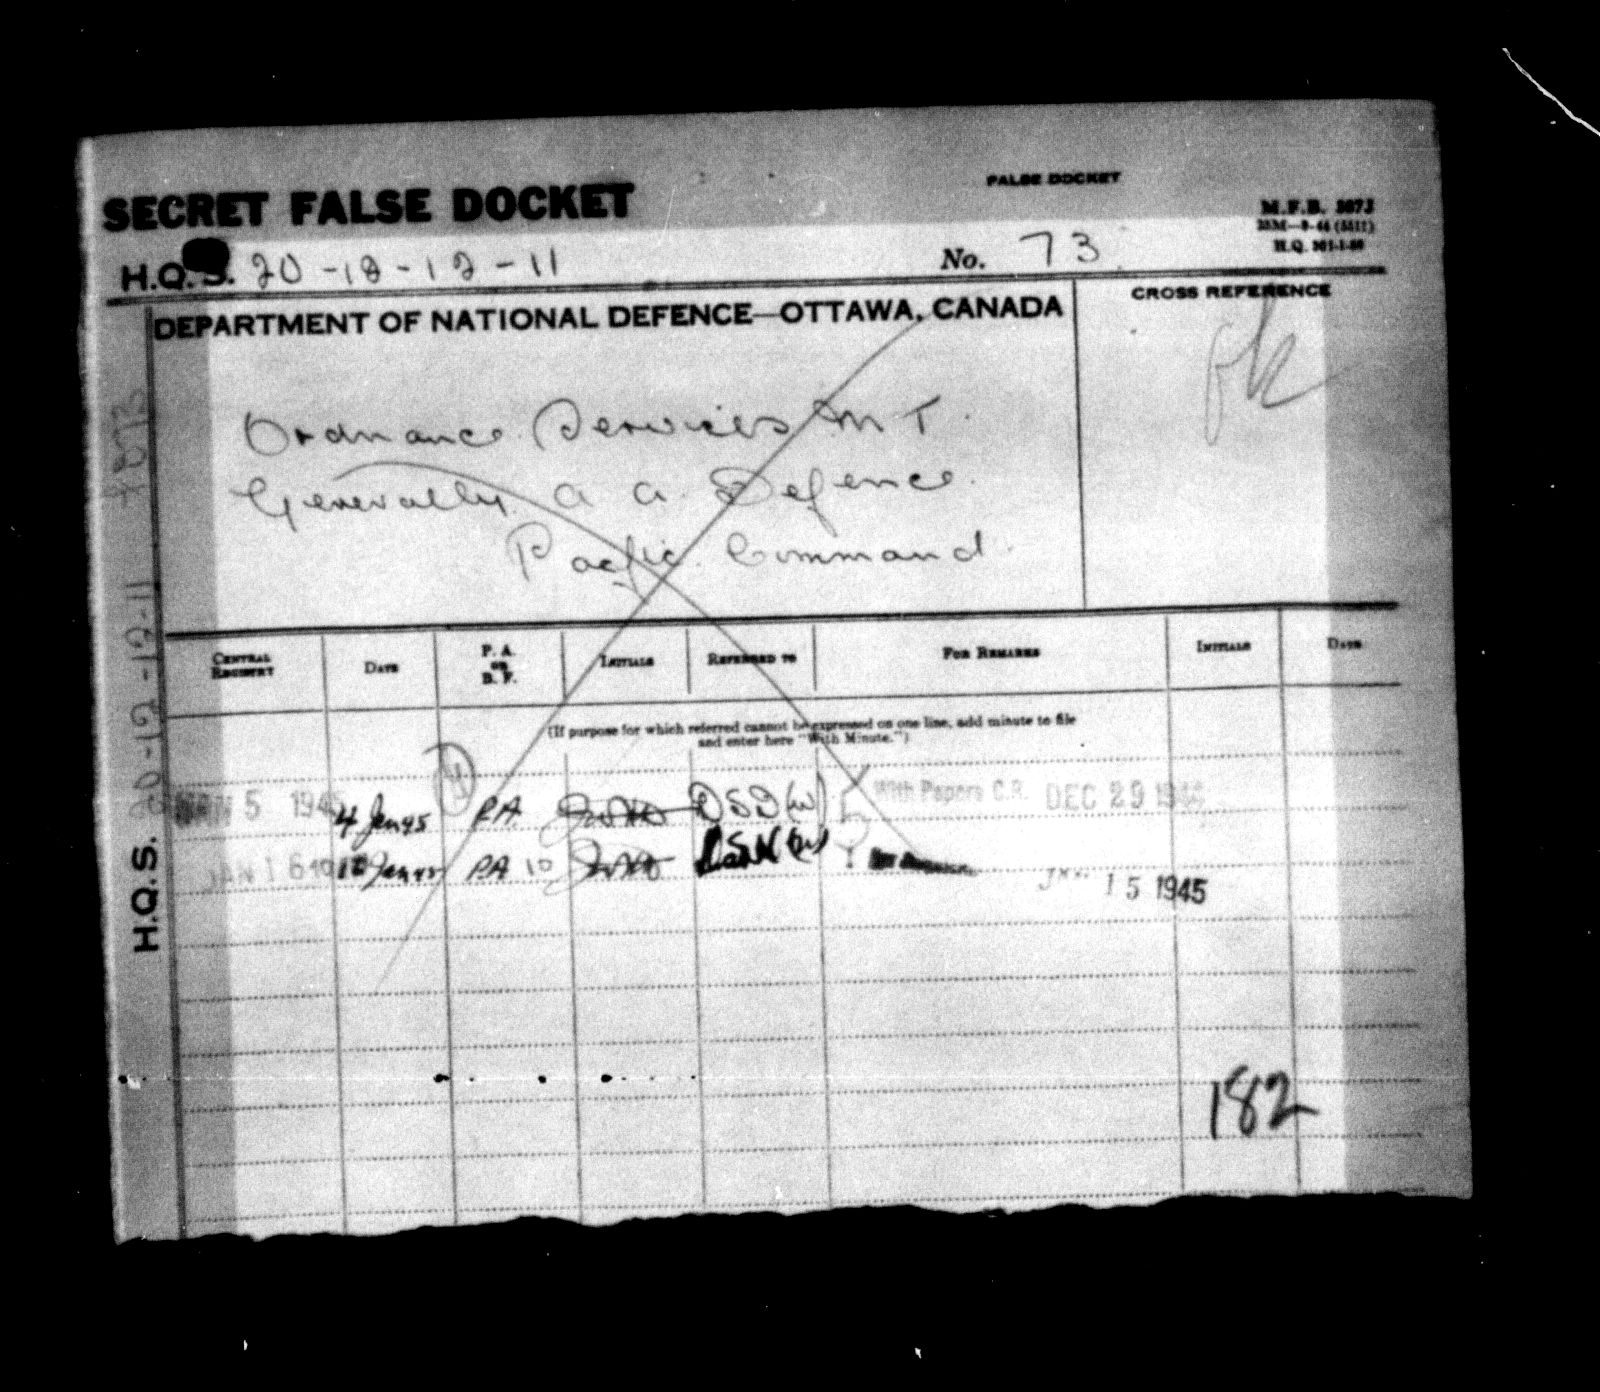 FALSE DOCKET
SECRET FALSE DOCKET
M.F.B.
H.Q.S. 20-12-12-11
No. 73
DEPARTMENT OF NATIONAL DEFENCE—OTTAWA, CANADA
CROSS REFERENCE
Ordnance Services M T.
Generally A A. Defence.
Pacific Command.
CENTRAL REGISTRY
DATE
P. A. OR B. F.
INITIALS
REFERRED TO
FOR REMARKS
INITIALS
DATE
(If purpose for which referred cannot be expressed on one line, add minute to file
and enter here "With Minute.")
JAN 5 1945 4 Jan 45 P.A. DSD(W) With Papers C.R. DEC 29 1944
JAN 16 Jan 45 PA 10
15 1945
182
H.Q.S. 20-12-12-11